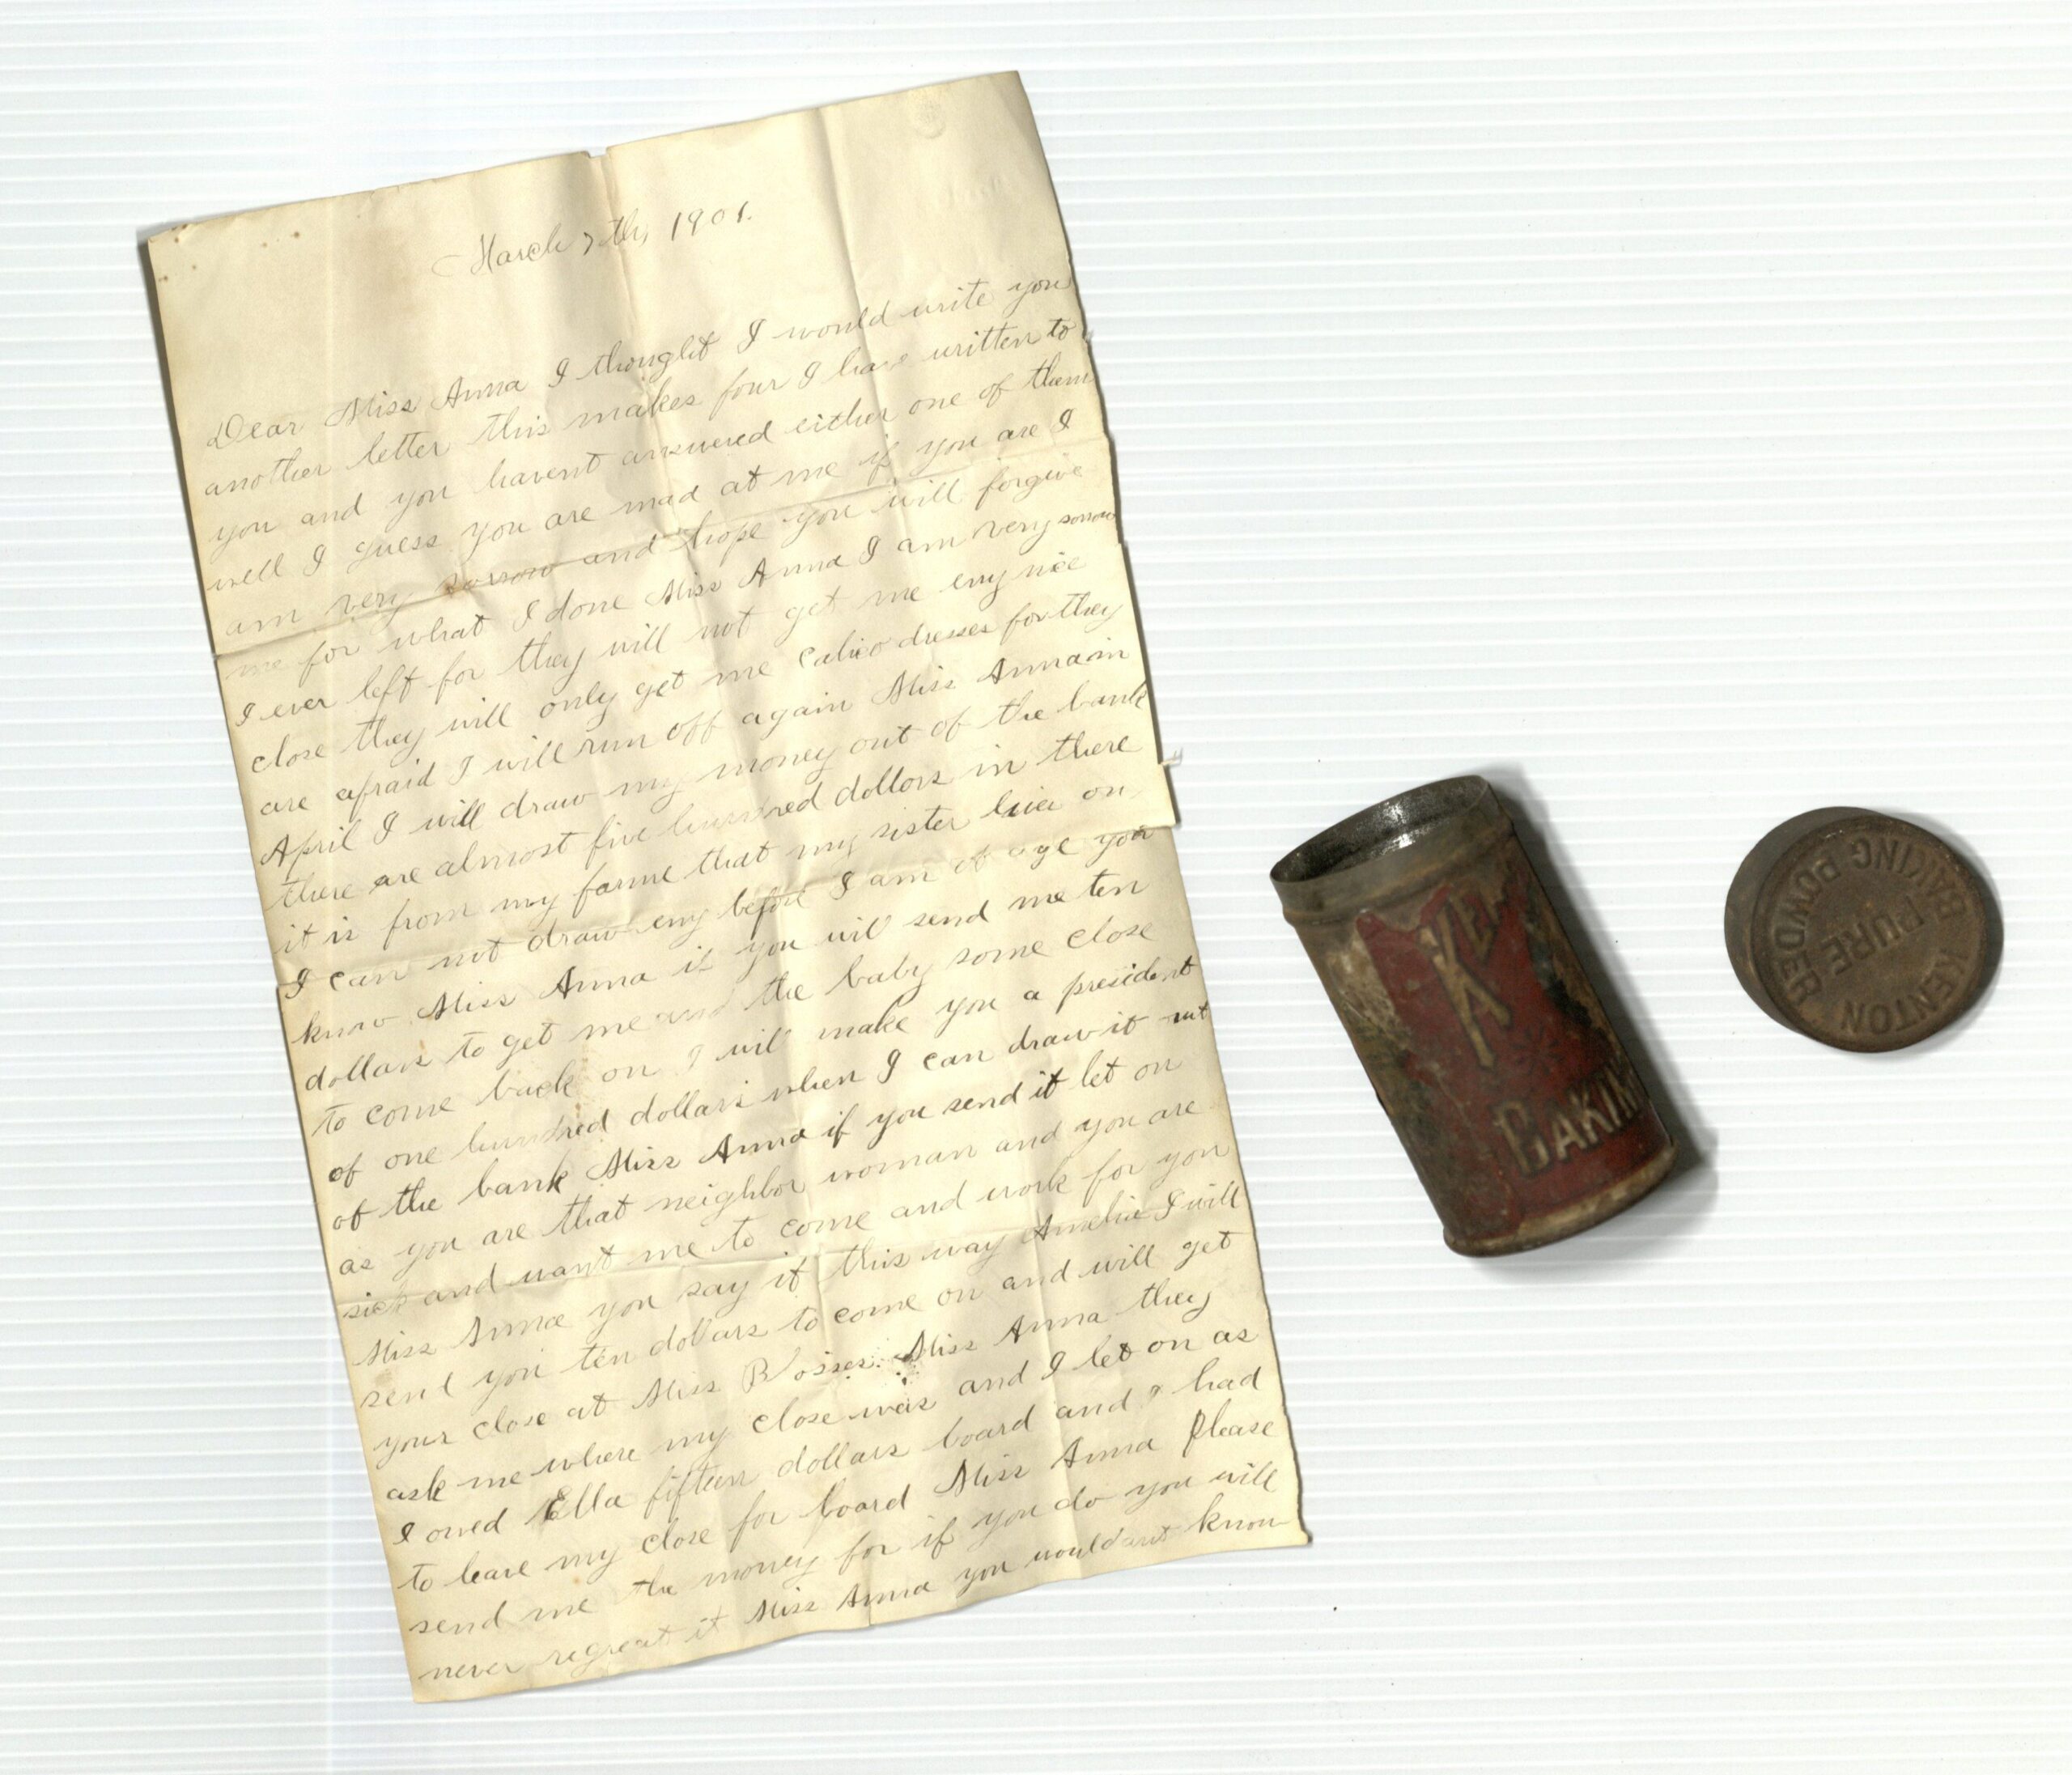 March 7th, 1901.
Dear Miss Anna I thought I would write you
another letter this makes four I have written to
you and you havent answered either one of them
well I guess you are mad at me if you are I
am very sorrow and hope you will forgive
me for what I done Miss Anna I am very sorrow
I ever left for they will not get me eny nice
close they will only get me calico dresses for they
are afraid I will run off again Miss Anna in
April I will draw my money out of the bank
there are almost five hundred dollars in there
it is from my farme that my sister live on
I can not draw eny before I am of age you
know Miss Anna if you will send me ten
dollars to get me and the baby some close
to come back on I will make you a president
of one hundred dollars when I can draw it out
of the bank Miss Anna if you send it let on
as you are that neighbor woman and you are
sick and want me to come and work for you
Miss Anna you say it this way Amelia I will
send you ten dollars to come on and will get
your close at Miss Blosses. Miss Anna they
ask me where my close was and I let on as
I owed Ella fifteen dollars board and I had
to leave my close for board Miss Anna Please
send me the money for if you do you will
never regreat it Miss Anna you wouldant know
KEN
BAKIN
KENTON
BAKING POWDER
PURE